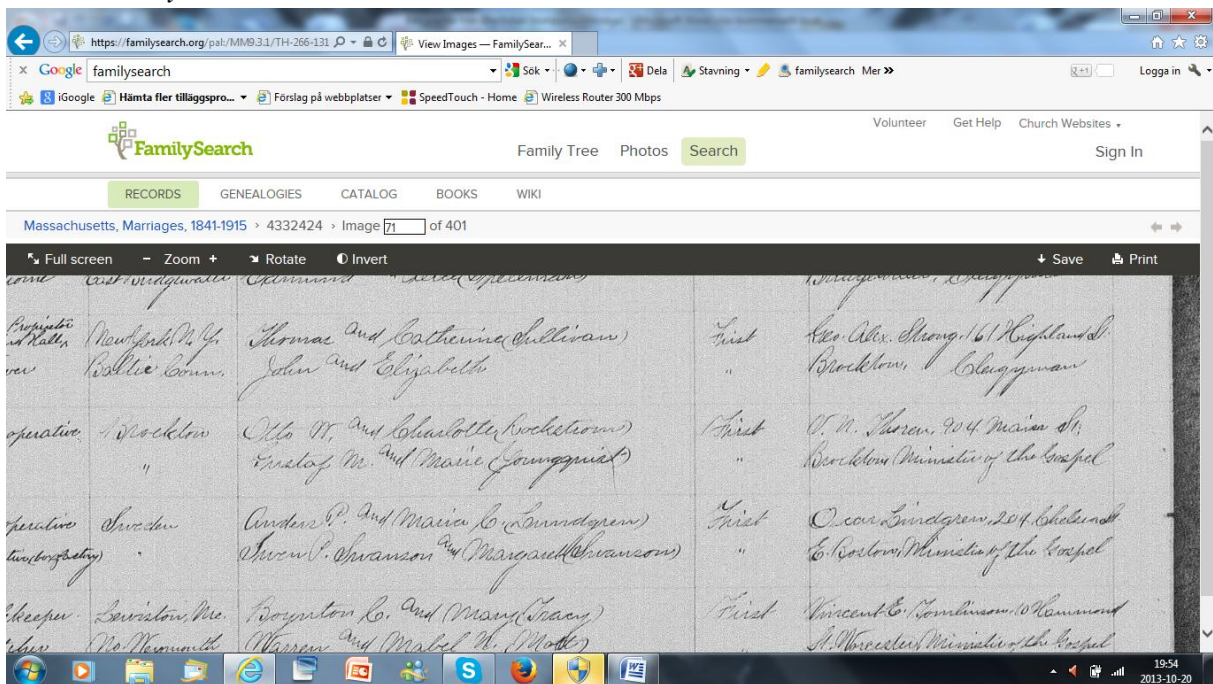 https://familysearch.org/pal:/MM9.3.1/TH-266-131
View Images — FamilySear...
Google familysearch Sök Dela Stavning familysearch Mer >> Logga in
iGoogle Hämta fler tilläggspro... Förslag på webbplatser SpeedTouch - Home Wireless Router 300 Mbps
Volunteer Get Help Church Websites
FamilySearch Family Tree Photos Search Sign In
RECORDS GENEALOGIES CATALOG BOOKS WIKI
Massachusetts, Marriages, 1841-1915 > 4332424 > Image 71 of 401
Full screen - Zoom + Rotate Invert Save Print
East Bridgewater
New York N. Y. Thomas and Catherine (Sullivan) First Geo. Alex. Strong, 161 Highland St.
Baltic Conn. John and Elizabeth " Brockton, Clergyman
operative Brockton Otto W. and Charlotte First O. N. Thoren, 904 Main St,
" Gustaf M. and Marie (Youngquist) " Brockton Minister of the Gospel
Sweden Anders P. and Maria C. First Oscar Lindgren, 204 Chelsea St
" Swen P. Swanson and Margaret (Swanson) " E. Boston, Minister of the Gospel
Lewiston, Me. Boynton C. and Mary (Tracy) First Vincent E. Tomlinson, Hammond
No. Warren and Mabel St. Worcester, Minister of the Gospel
19:54
2013-10-20